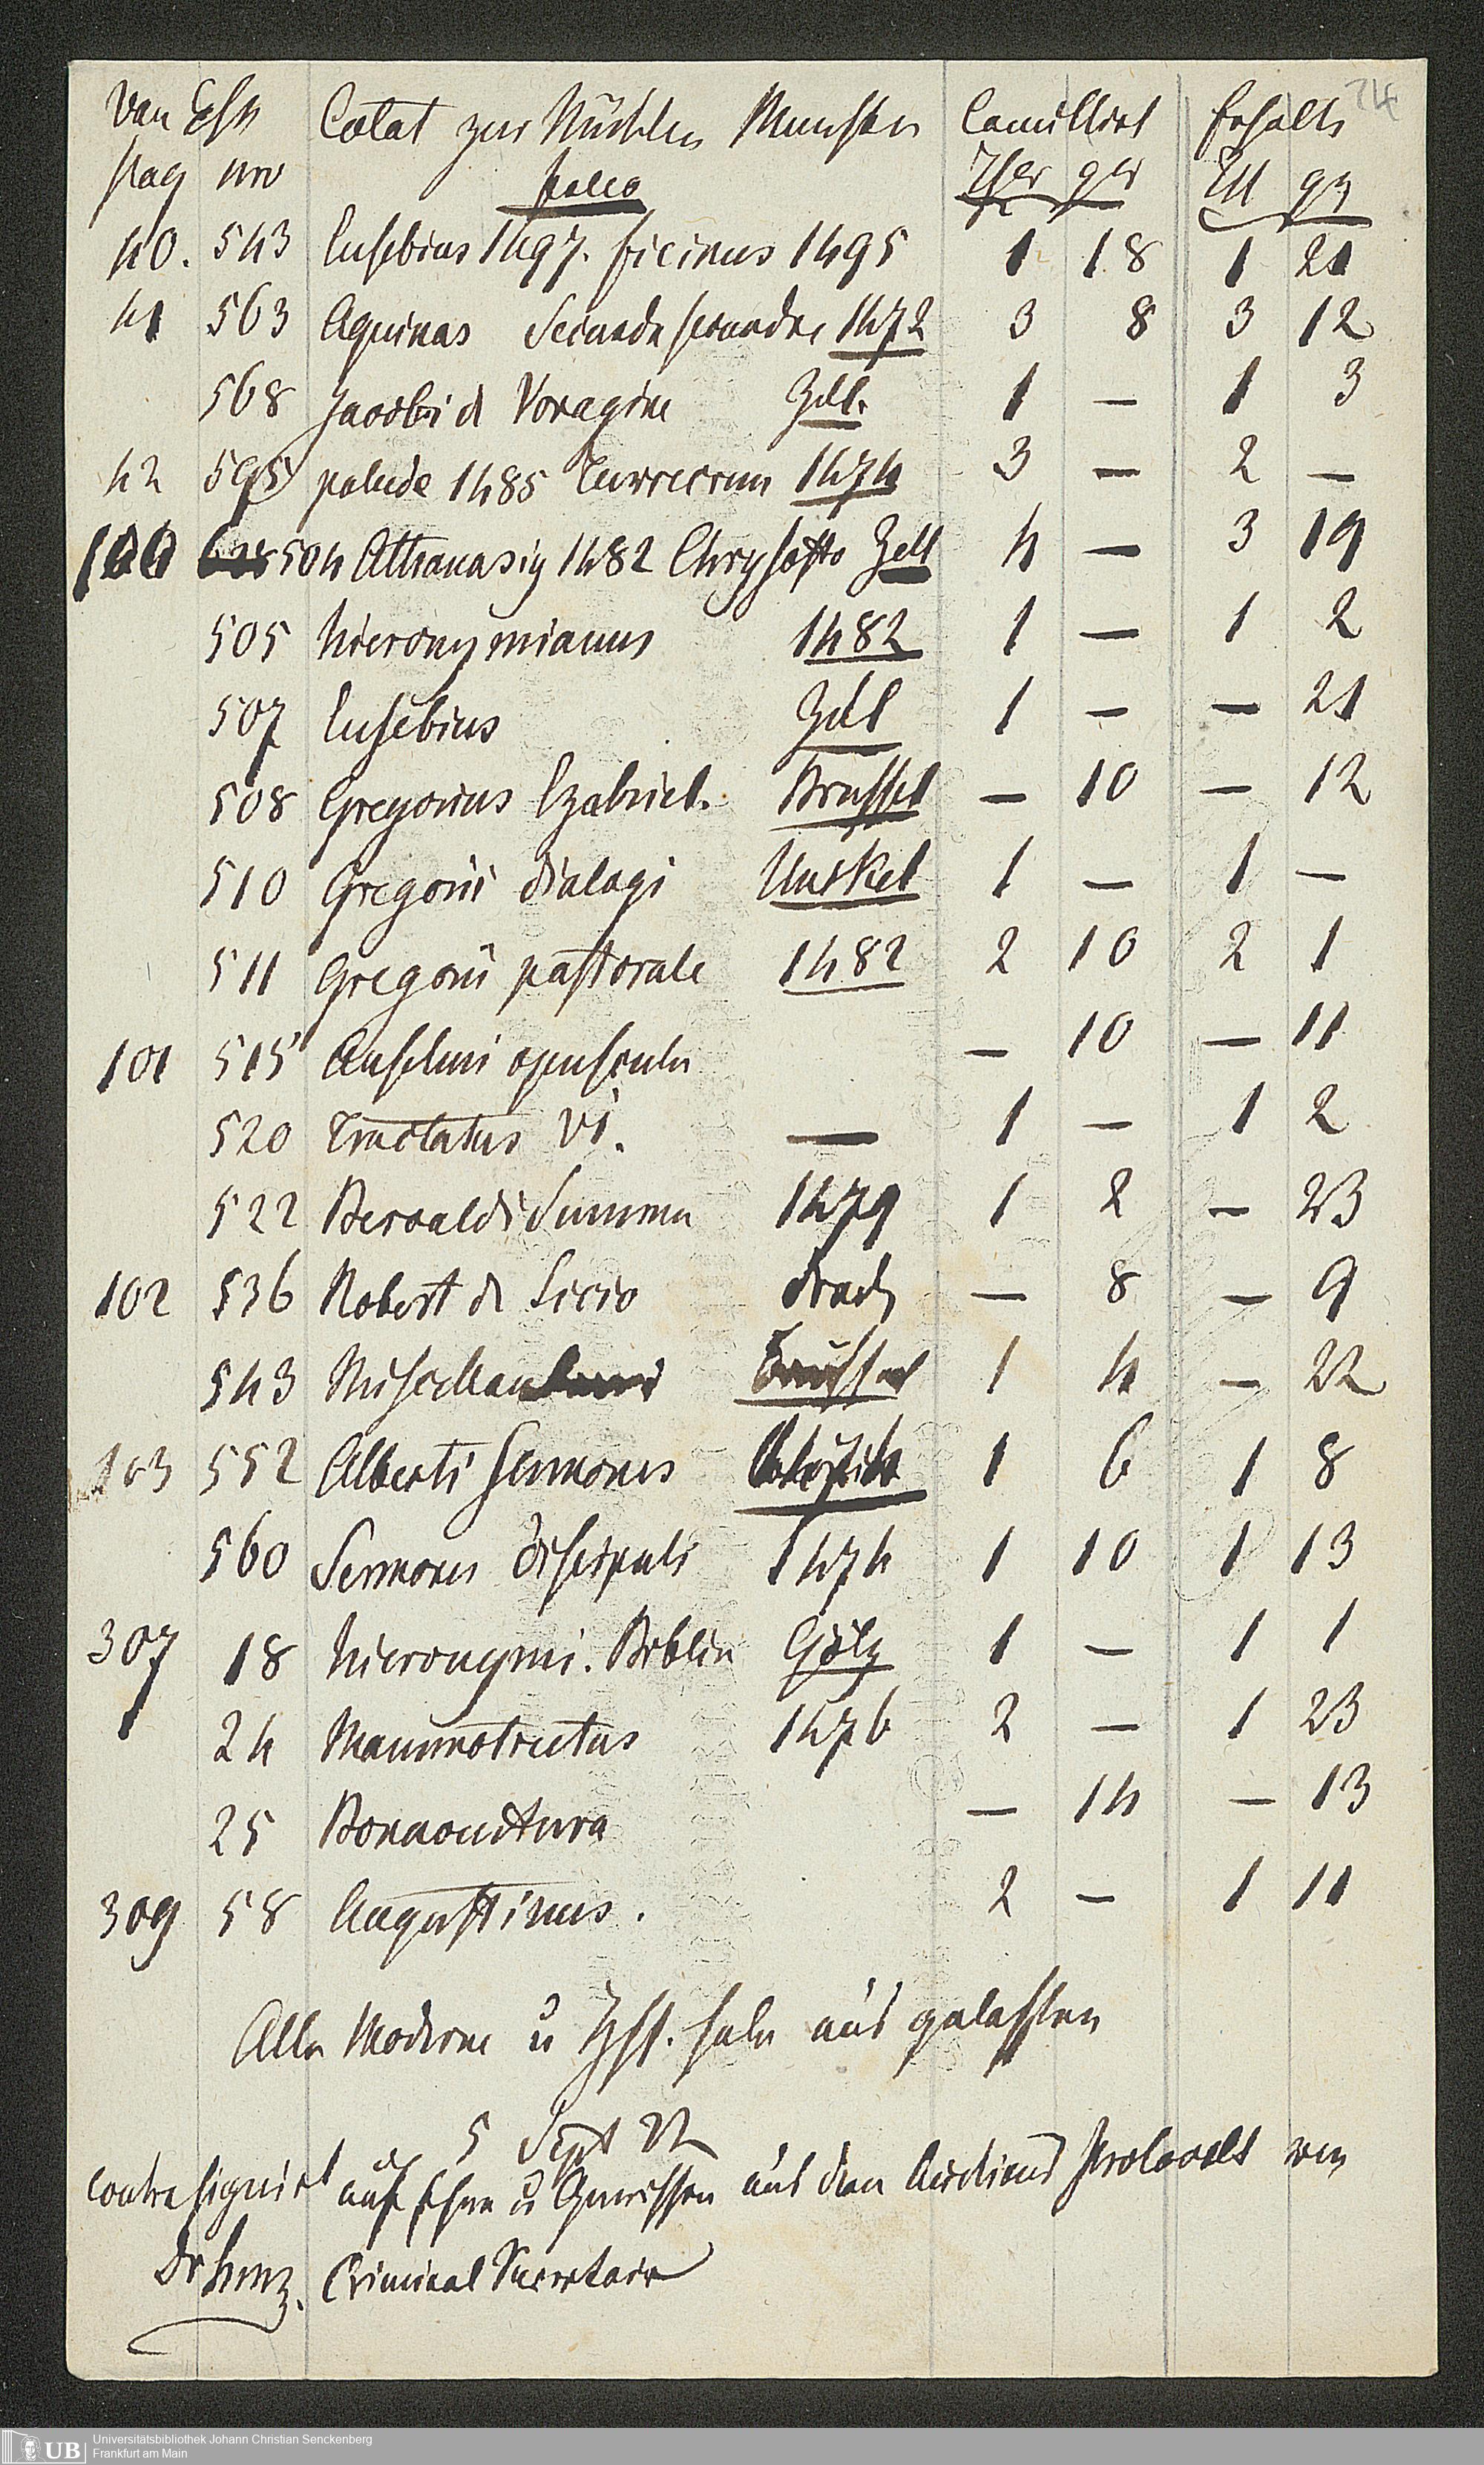 Van Eſſ Catal zur Mühlen Munster Committirt Erhalte 74
pag nro folio Thlr ggr Thl ggr
40. 543 Eusebius 1497. ficinus 1495 1 18 1 21
41 563 Aquinas Secunda secundae 1472 3 8 3 12
568 Jacobi d Voragine Zell. 1 — 1 3
42 595 palude 1485 Turrecrem 1474 3 — 2 —
100 504 Athanasig 1482 Chrysosto Zell 4 — 3 19
505 Hieronymianus 1482 1 — 1 2
507 Eusebius Zell 1 — — 21
508 Gregorius Ezabriel. Brussel — 10 — 12
510 Gregorii dialogi Unkel 1 — 1 —
511 Gregorii pastorale 1482 2 10 2 1
101 515 Anselmi opuscula — 10 — 11
520 Tractatus VI. — 1 — 1 2
522 Beroaldi Summa 1479 1 2 — 23
102 536 Robert de Licio Drach — 8 — 9
543 Miscellan 1 4 — 22
103 552 Alberti Sermones 1 6 1 8
560 Sermones discipuli 1474 1 10 1 13
307 18 Hieronymi. Biblia Götz 1 — 1 1
24 Mammotrectus 1476 2 — 1 23
25 Bonaventura — 14 — 13
309 58 Augustinus. 2 — 1 11
Alle Moderne u Hſſ. habe aus gelassen
5 Sept 22
contrasignirt auf Ehre u Gewissen aus dem Auctions Protocolle von
Dr Criminal Secretair
UB Universitätsbibliothek Johann Christian Senckenberg
Frankfurt am Main